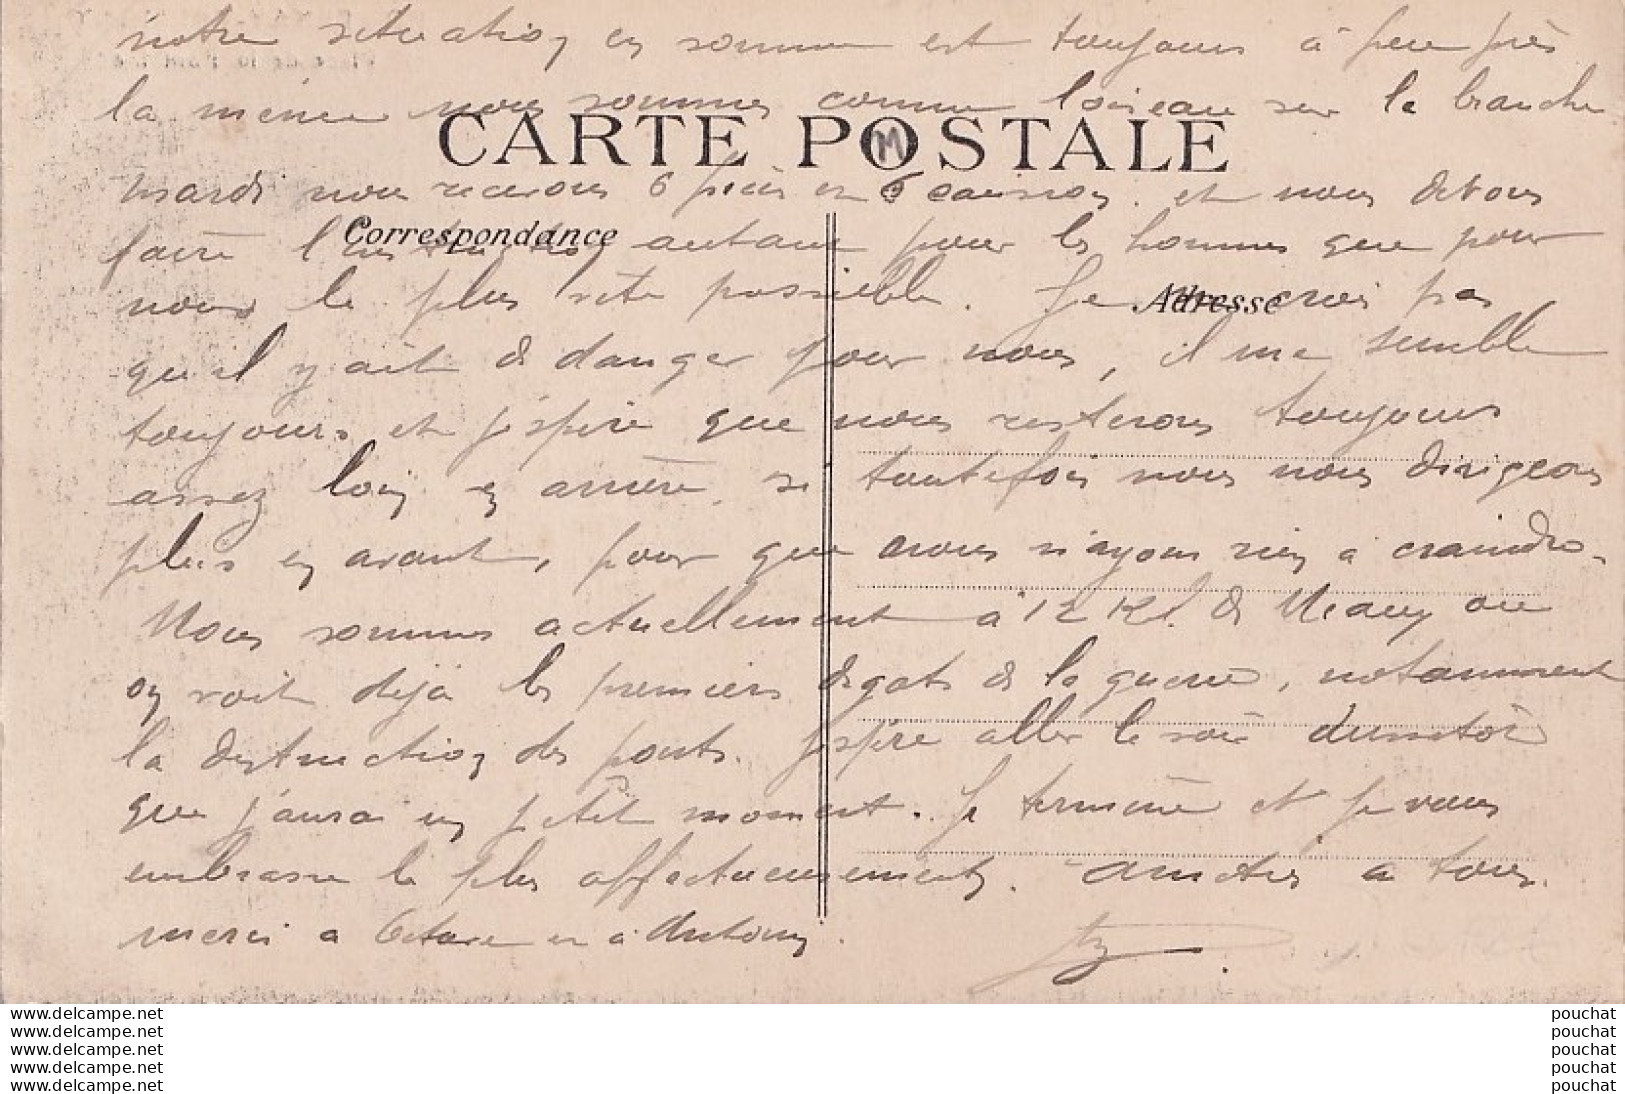 notre situation en somme est toujours à peu près
la même nous sommes comme loiseau sur la branche
CARTE POSTALE
M
mardi nous recevons 6 pièces et 6 caissons. et nous devons
Correspondance
faire l'instruction autant pour les hommes que pour
nous le plus vite possible. Je ne crois pas
Adresse
qu'il y ait de danger pour nous, il me semble
toujours et j'espère que nous resterons toujours
assez loin en arrière. si toutefois nous nous dirigeons
plus en avant, pour que nous n'ayons rien à craindre.
Nous sommes actuellement à 12 Kl. de Meaux ou
on voit déjà les premiers dégats de la guerre, notamment
la destruction des ponts. j'espère aller le voir
que j'aurai un petit moment. Je termine et je vous
embrasse le plus affectueusement. amitiés a tous.
merci a Octave et à Antony.
www.delcampe.net
www.delcampe.net
www.delcampe.net
www.delcampe.net
www.delcampe.net
pouchat
pouchat
pouchat
pouchat
pouchat